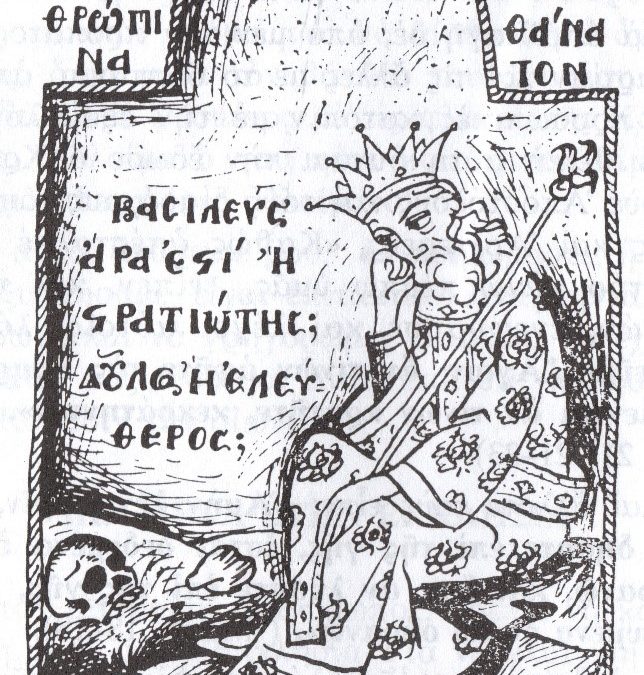 ΘΡΏΠΙ
ΝΑ
ΘΆΝΑ
ΤΟΝ
ΒΑΣΙΛΕῪΣ
ἌΡΑ ἘϚΙ´ Ἢ
ϚΡΑΤΙΏΤΗΣ;
ΔΟΥ͂ΛΟΣ Ἢ ἘΛΕΎ=
ΘΕΡΟΣ;